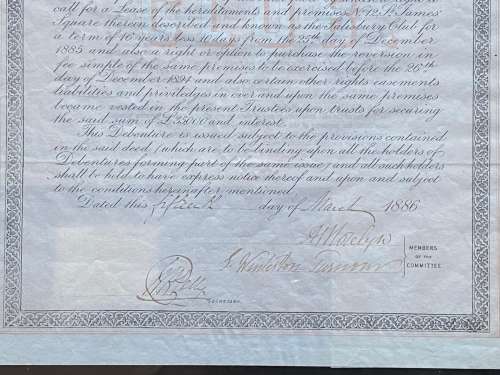 call for a Lease of the hereditaments and premises Nº 12 St James'
Square therein described and known as the Salisbury Club for
a term of 16 years less 10 days from the 25th day of December
1885 and also a right or option to purchase the reversion in
fee simple of the same premises to be exercised before the 26th
day of December 1894 and also certain other rights easements
liabilities and priviledges in over and upon the same premises
became vested in the present Trustees upon trusts for securing
the said sum of £35000 and interest.
This Debenture is issued subject to the provisions contained
in the said deed, (which are to be binding upon all the holders of
Debentures forming part of the same issue) and all such holders
shall be held to have express notice thereof and upon and subject
to the conditions hereinafter mentioned.
Dated this day of March 1886
MEMBERS
OF THE
COMMITTEE.
SECRETARY.